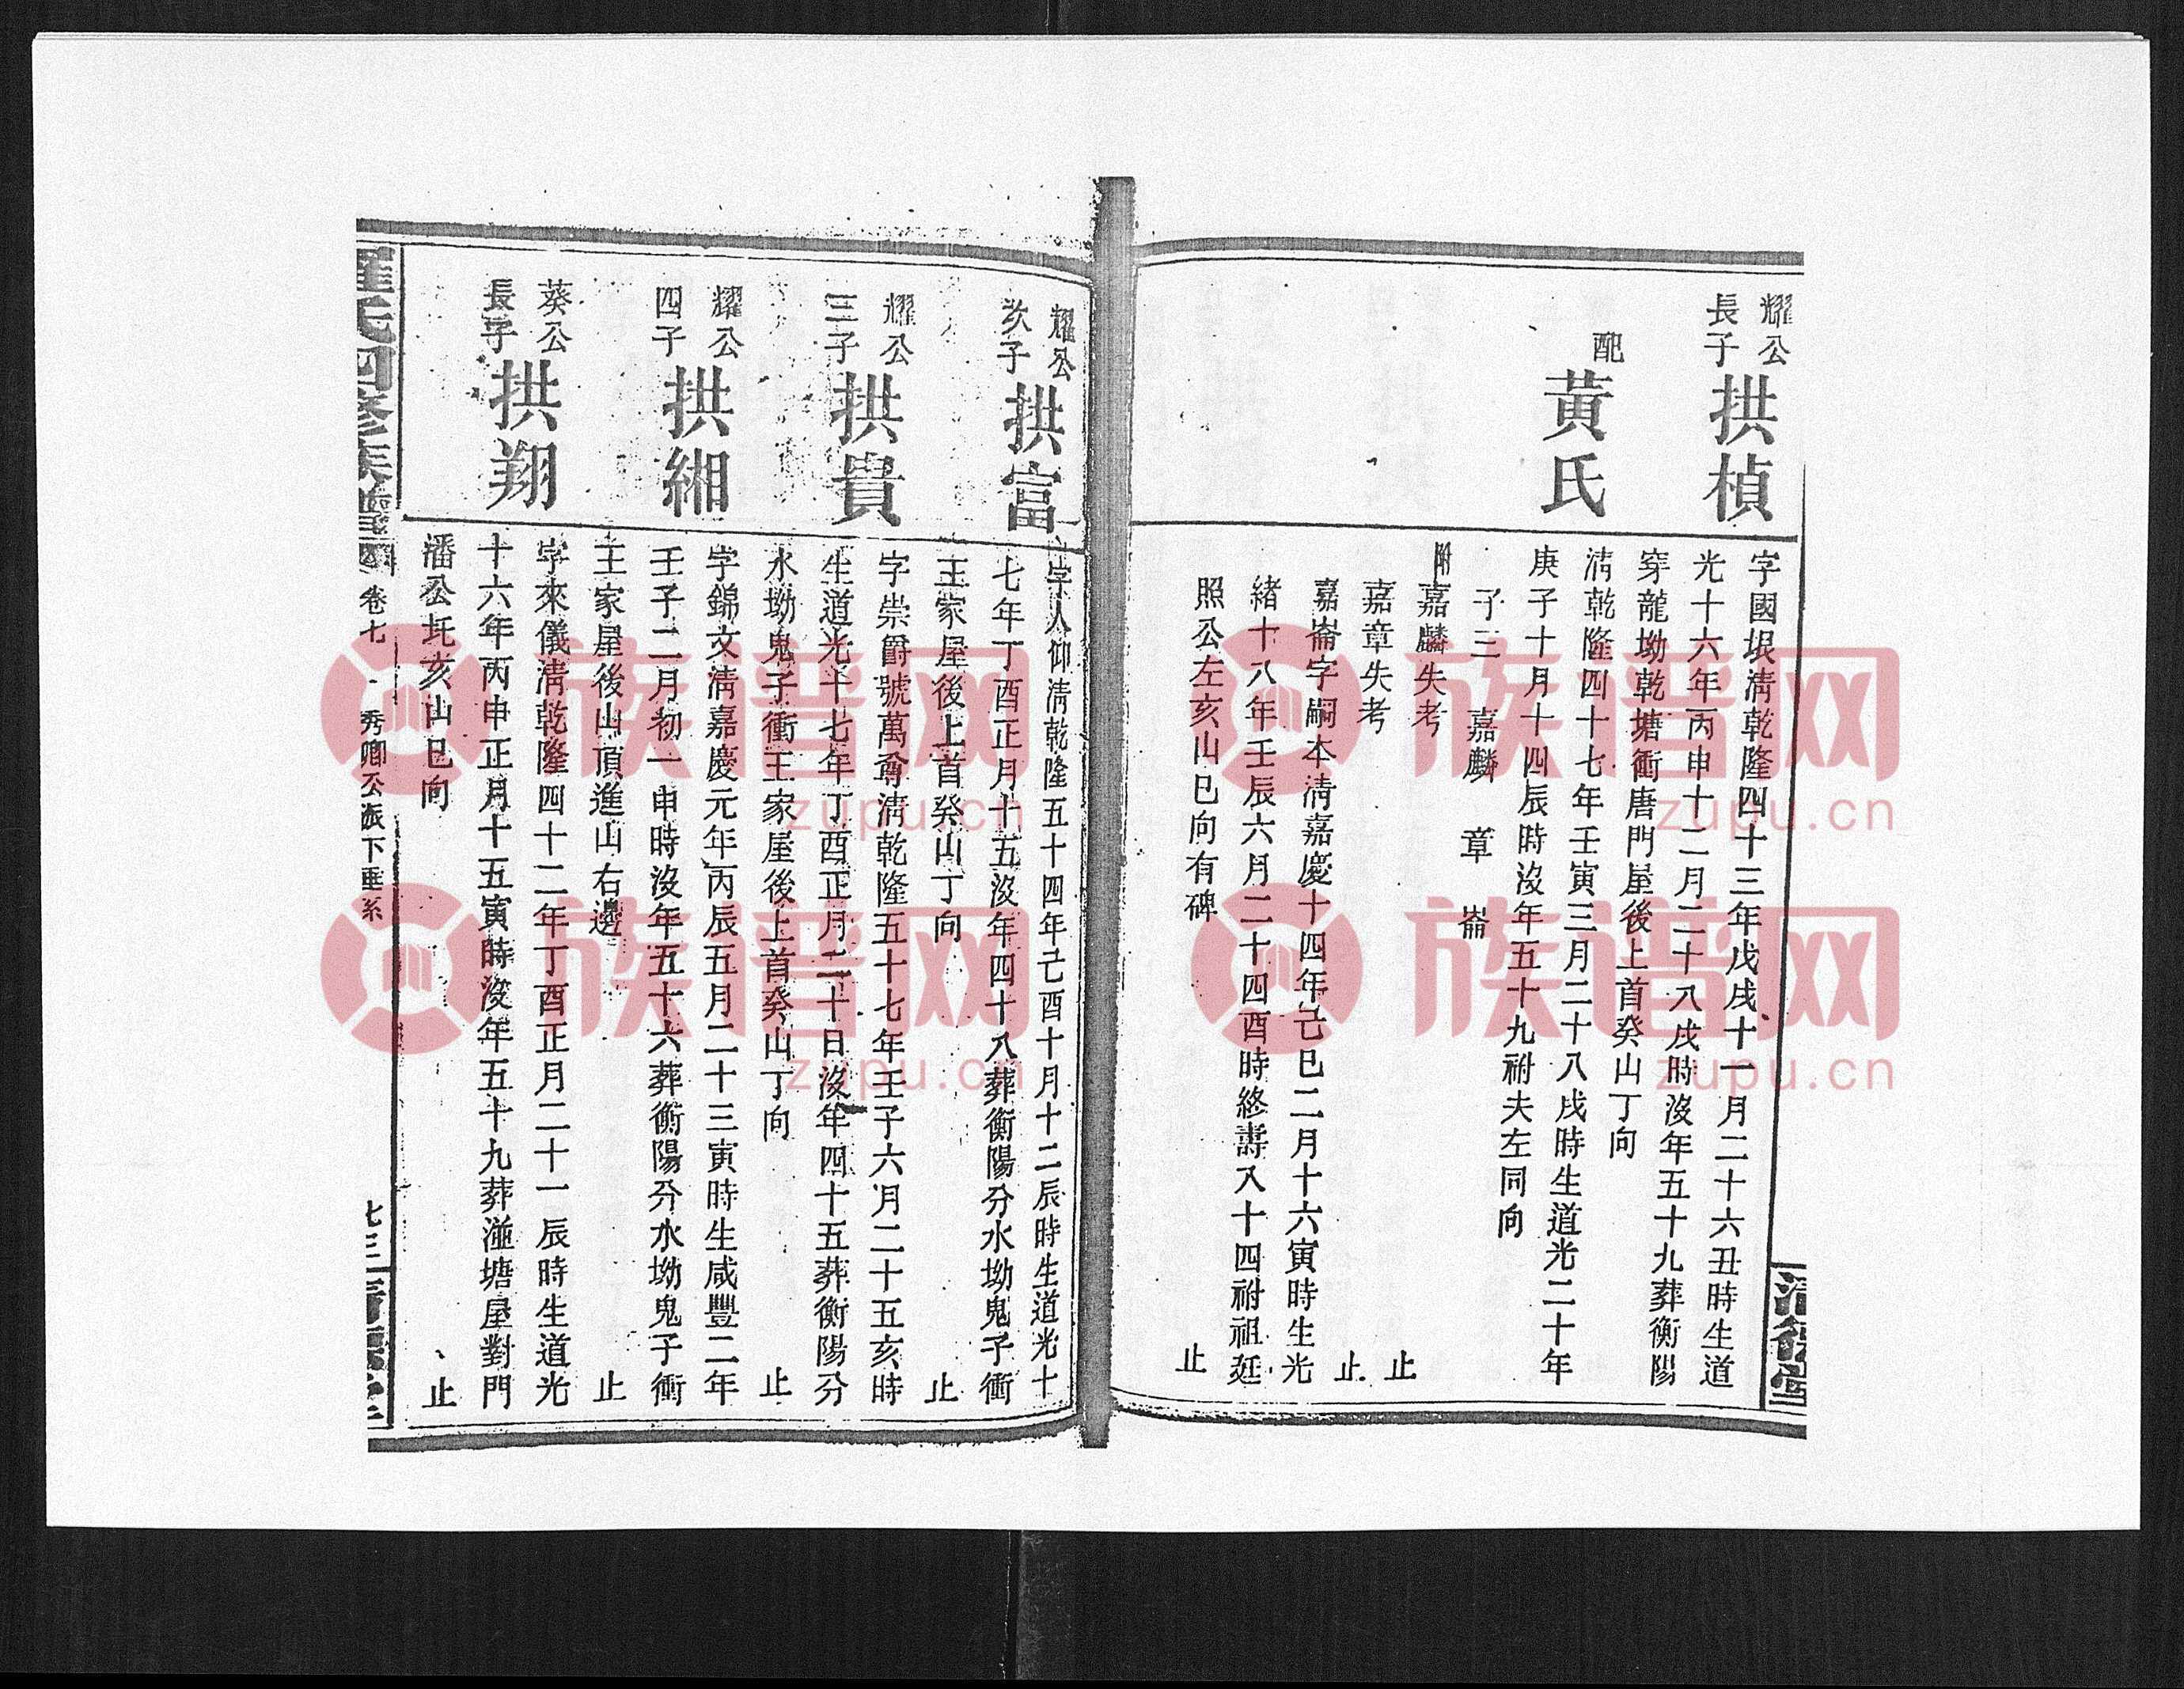 耀公
長子
拱楨
字國垠清乾隆四十三年戊戌十一月二十六丑時生道
光十六年丙申十二月二十八戌時沒年五十九葬衡陽
穿龍坳乾塘衝唐門屋後上首癸山丁向
配
黃氏
清乾隆四十七年壬寅三月二十八戌時生道光二十年
庚子十月十四辰時沒年五十九祔夫左同向
子三 嘉麟 章 崙
附嘉麟失考 止
嘉章失考 止
嘉崙字嗣本清嘉慶十四年己巳二月十六寅時生光
緒十八年壬辰六月二十四酉時終壽八十四祔祖廷
照公左亥山巳向有碑 止
清德堂
耀公
次子
拱富
字人仰清乾隆五十四年己酉十月十二辰時生道光十
七年丁酉正月十五沒年四十八葬衡陽分水坳鬼子衝
王家屋後上首癸山丁向 止
耀公
三子
拱貴
字崇爵號萬尊清乾隆五十七年壬子六月二十五亥時
生道光十七年丁酉正月二十日沒年四十五葬衡陽分
水坳鬼子衝王家屋後上首癸山丁向 止
耀公
四子
拱緗
字錦文清嘉慶元年丙辰五月二十三寅時生咸豐二年
壬子二月初一申時沒年五十六葬衡陽分水坳鬼子衝
王家屋後山頂進山右邊 止
葵公
長子
拱翔
字來儀清乾隆四十二年丁酉正月二十一辰時生道光
十六年丙申正月十五寅時沒年五十九葬湴塘屋對門
潘公圫亥山巳向 止
羅氏四修族譜
卷七
秀卿公派下垂系
七三
清德堂
族谱网
zupu.cn
族谱网
zupu.cn
族谱网
zupu.cn
族谱网
zupu.cn